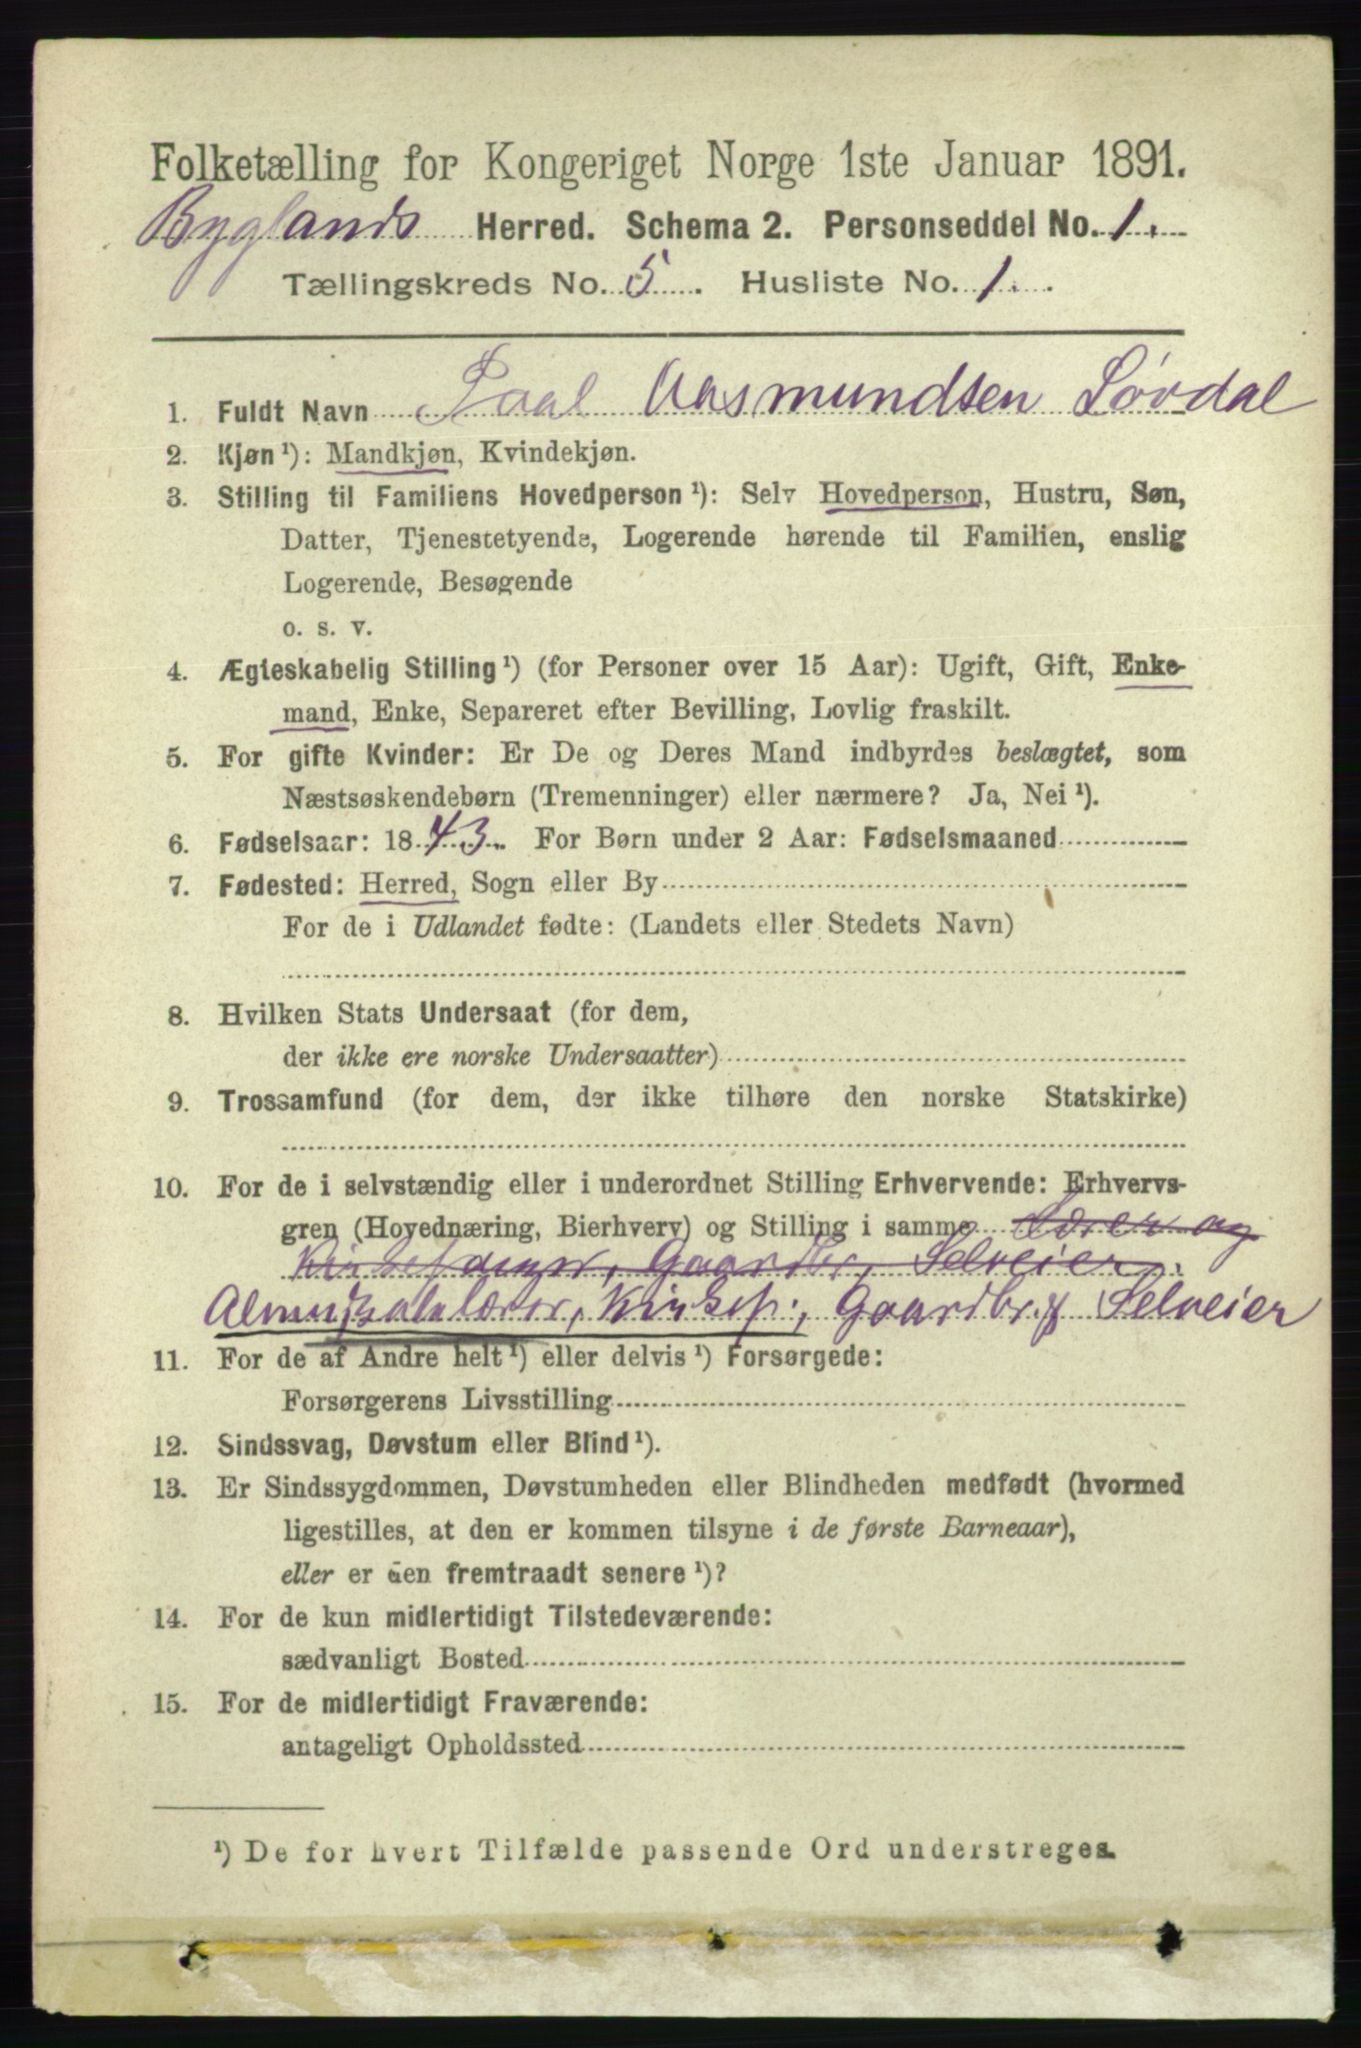 Folketælling for Kongeriget Norge 1ste Januar 1891.
Byglands Herred. Schema 2. Personseddel No. 1.
Tællingskreds No. 5. Husliste No. 1.
1. Fuldt Navn Paal Aasmundsen Løvdal
2. Kjøn¹): Mandkjøn, Kvindekjøn.
3. Stilling til Familiens Hovedperson¹): Selv Hovedperson, Hustru, Søn,
Datter, Tjenestetyende, Logerende hørende til Familien, enslig
Logerende, Besøgende
o. s. v.
4. Ægteskabelig Stilling¹) (for Personer over 15 Aar): Ugift, Gift, Enke-
mand, Enke, Separeret efter Bevilling, Lovlig fraskilt.
5. For gifte Kvinder: Er De og Deres Mand indbyrdes beslægtet, som
Næstsøskendebørn (Tremenninger) eller nærmere? Ja, Nei¹).
6. Fødselsaar: 1843. For Børn under 2 Aar: Fødselsmaaned
7. Fødested: Herred, Sogn eller By
For de i Udlandet fødte: (Landets eller Stedets Navn)
8. Hvilken Stats Undersaat (for dem,
der ikke ere norske Undersaatter)
9. Trossamfund (for dem, der ikke tilhøre den norske Statskirke)
10. For de i selvstændig eller i underordnet Stilling Erhvervende: Erhvervs-
gren (Hovednæring, Bierhverv) og Stilling i samme Lærer og
Kirkesanger, Gaardbr, Selveier.
Almuskolelærer, Kirkesp., Gaardbr. & Selveier
11. For de af Andre helt¹) eller delvis¹) Forsørgede:
Forsørgerens Livsstilling
12. Sindssvag, Døvstum eller Blind¹).
13. Er Sindssygdommen, Døvstumheden eller Blindheden medfødt (hvormed
ligestilles, at den er kommen tilsyne i de første Barneaar),
eller er den fremtraadt senere¹)?
14. For de kun midlertidigt Tilstedeværende:
sædvanligt Bosted
15. For de midlertidigt Fraværende:
antageligt Opholdssted
¹) De for hvert Tilfælde passende Ord understreges.